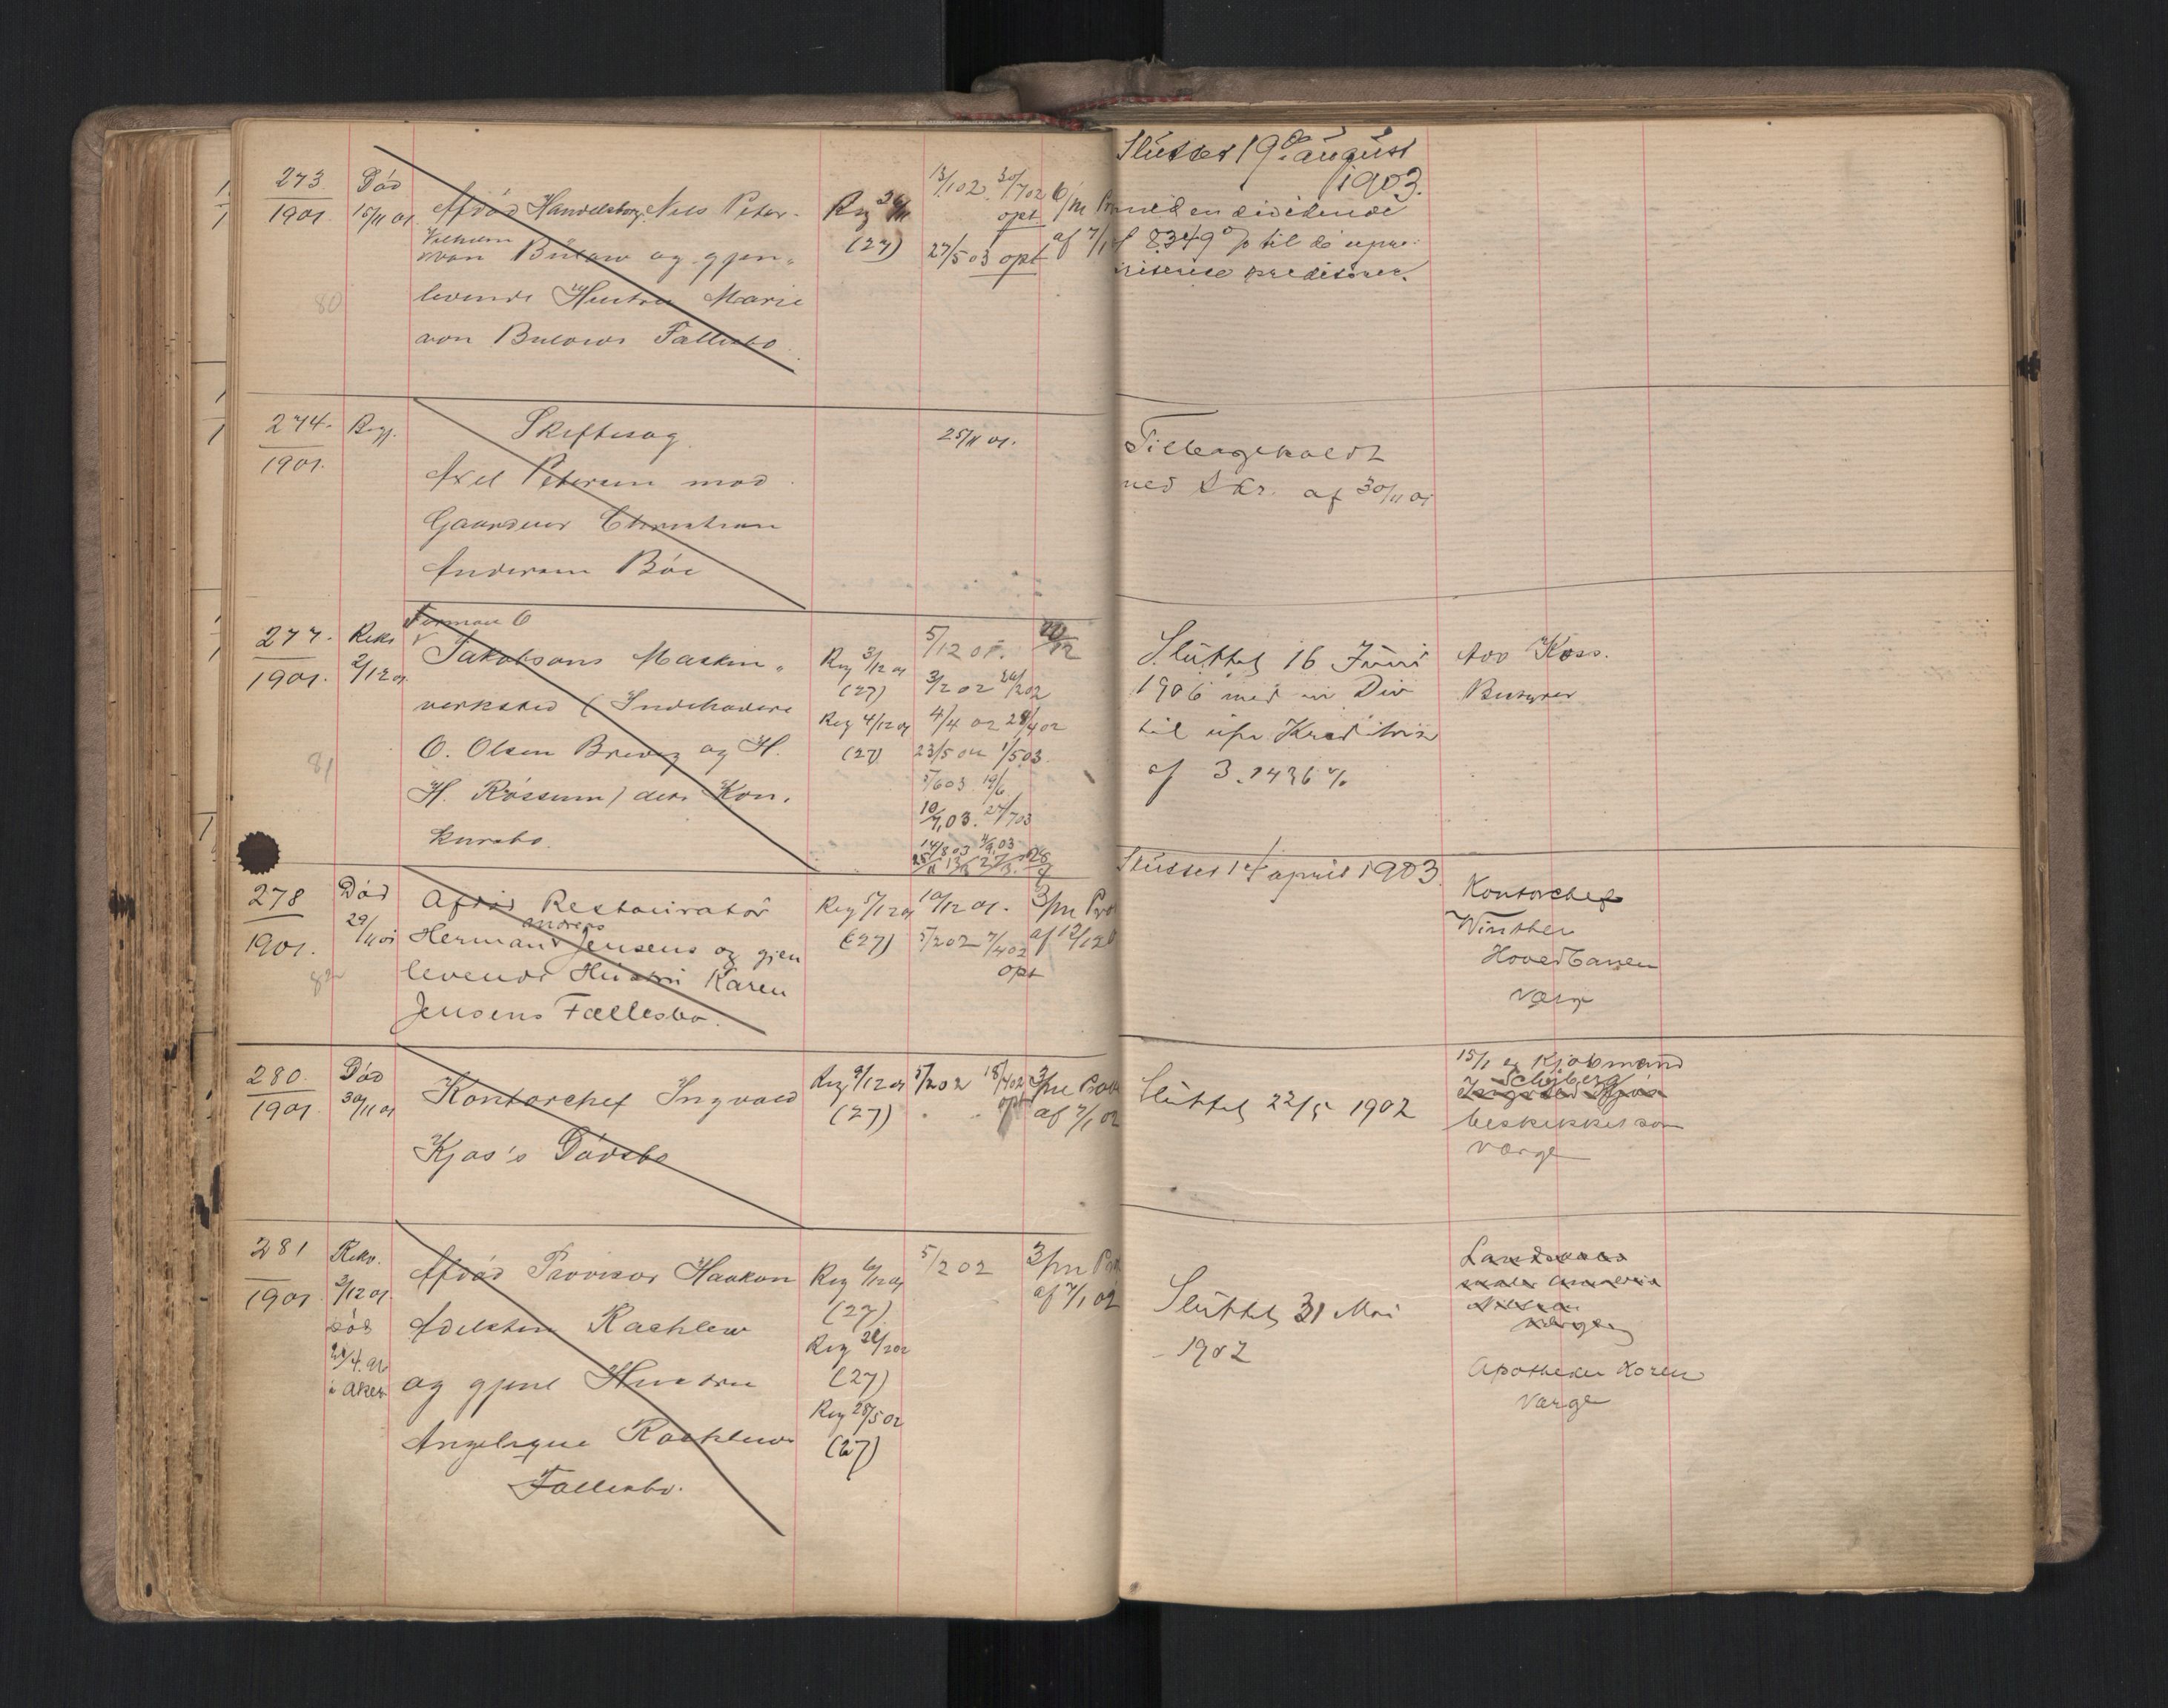 273
1901.
Død
15/11 01
Afdød Handelsborg. Nils Peter
Vilhelm
von Bülow og gjen-
levende Hustru Marie
von Bülows Fællesbo.
80
Reg 26/11
(27)
13/1 02. 30/7 02
opt
27/5 03 opt
af 7/1
Sluttet 19de august
1903.
med en dividende
af 8349 % til de upri-
kreditorer.
274.
1901.
Begj.
Skiftesag
Axel Petersen mod
Gaardeier Christian
Andersen Bøe
25/11 01.
Tilbagekaldt
ved Skr. af 30/11 01
277.
1901.
Rekv
2/12 01
Firmaet O
Jakobsens Maskin-
verksted (Indehavere
O. Olsen Brevig og H.
H. Røssum) deres Kon-
kursbo.
81
Reg 3/12 01
(27)
Reg 4/12 01
(27)
5/12 01.
3/2 02 24/2 02
4/4 02 28/4 02
23/5 02 1/5 03.
5/6 03 19/6
10/7 03. 24/7 03
14/8 03 4/9 03
Sluttet 16 Juni
1906 med en Div
til upr. Kreditorer
af 3.1436 %
Adv Koss.
Bestyrer
278
1901.
Død
29/11 01
Afdød Restauratør
Andreas
Hermans Jensens og gjen
levende Hustru Karen
Jensens Fællesbo.
82
Reg 5/12 01
(27)
10/12 01.
5/2 02 7/4 02
opt
3/m Pro
af 12/12 0
Sluttet 14 april 1903.
Kontorchef
Winther
Hovedbanen
værge
280.
1901.
Død
30/11 01
Kontorchef Ingvald
Kjøs's Dødsbo
Reg 9/12 01
(27)
5/2 02 18/4 02
opt
3/m Prov
af 7/1 02
Sluttet 22/5 1902
15/1 Kjøbmand
Schiøberg
beskikket som
værge
281
1901
Rekv.
3/12 01
død
i Aker
Afdød Provisor Haakon
Adelsten Raehlew
og gjenl Hustru
Angelique Raehlews
Fællesbo.
Reg 6/12 01
(27)
Reg 28/2 02
(27)
Reg 28/5 02
(27)
5/2 02
3/m Pro
af 7/1 02
Sluttet 31 Mai
1902
Apotheker Koren
værge